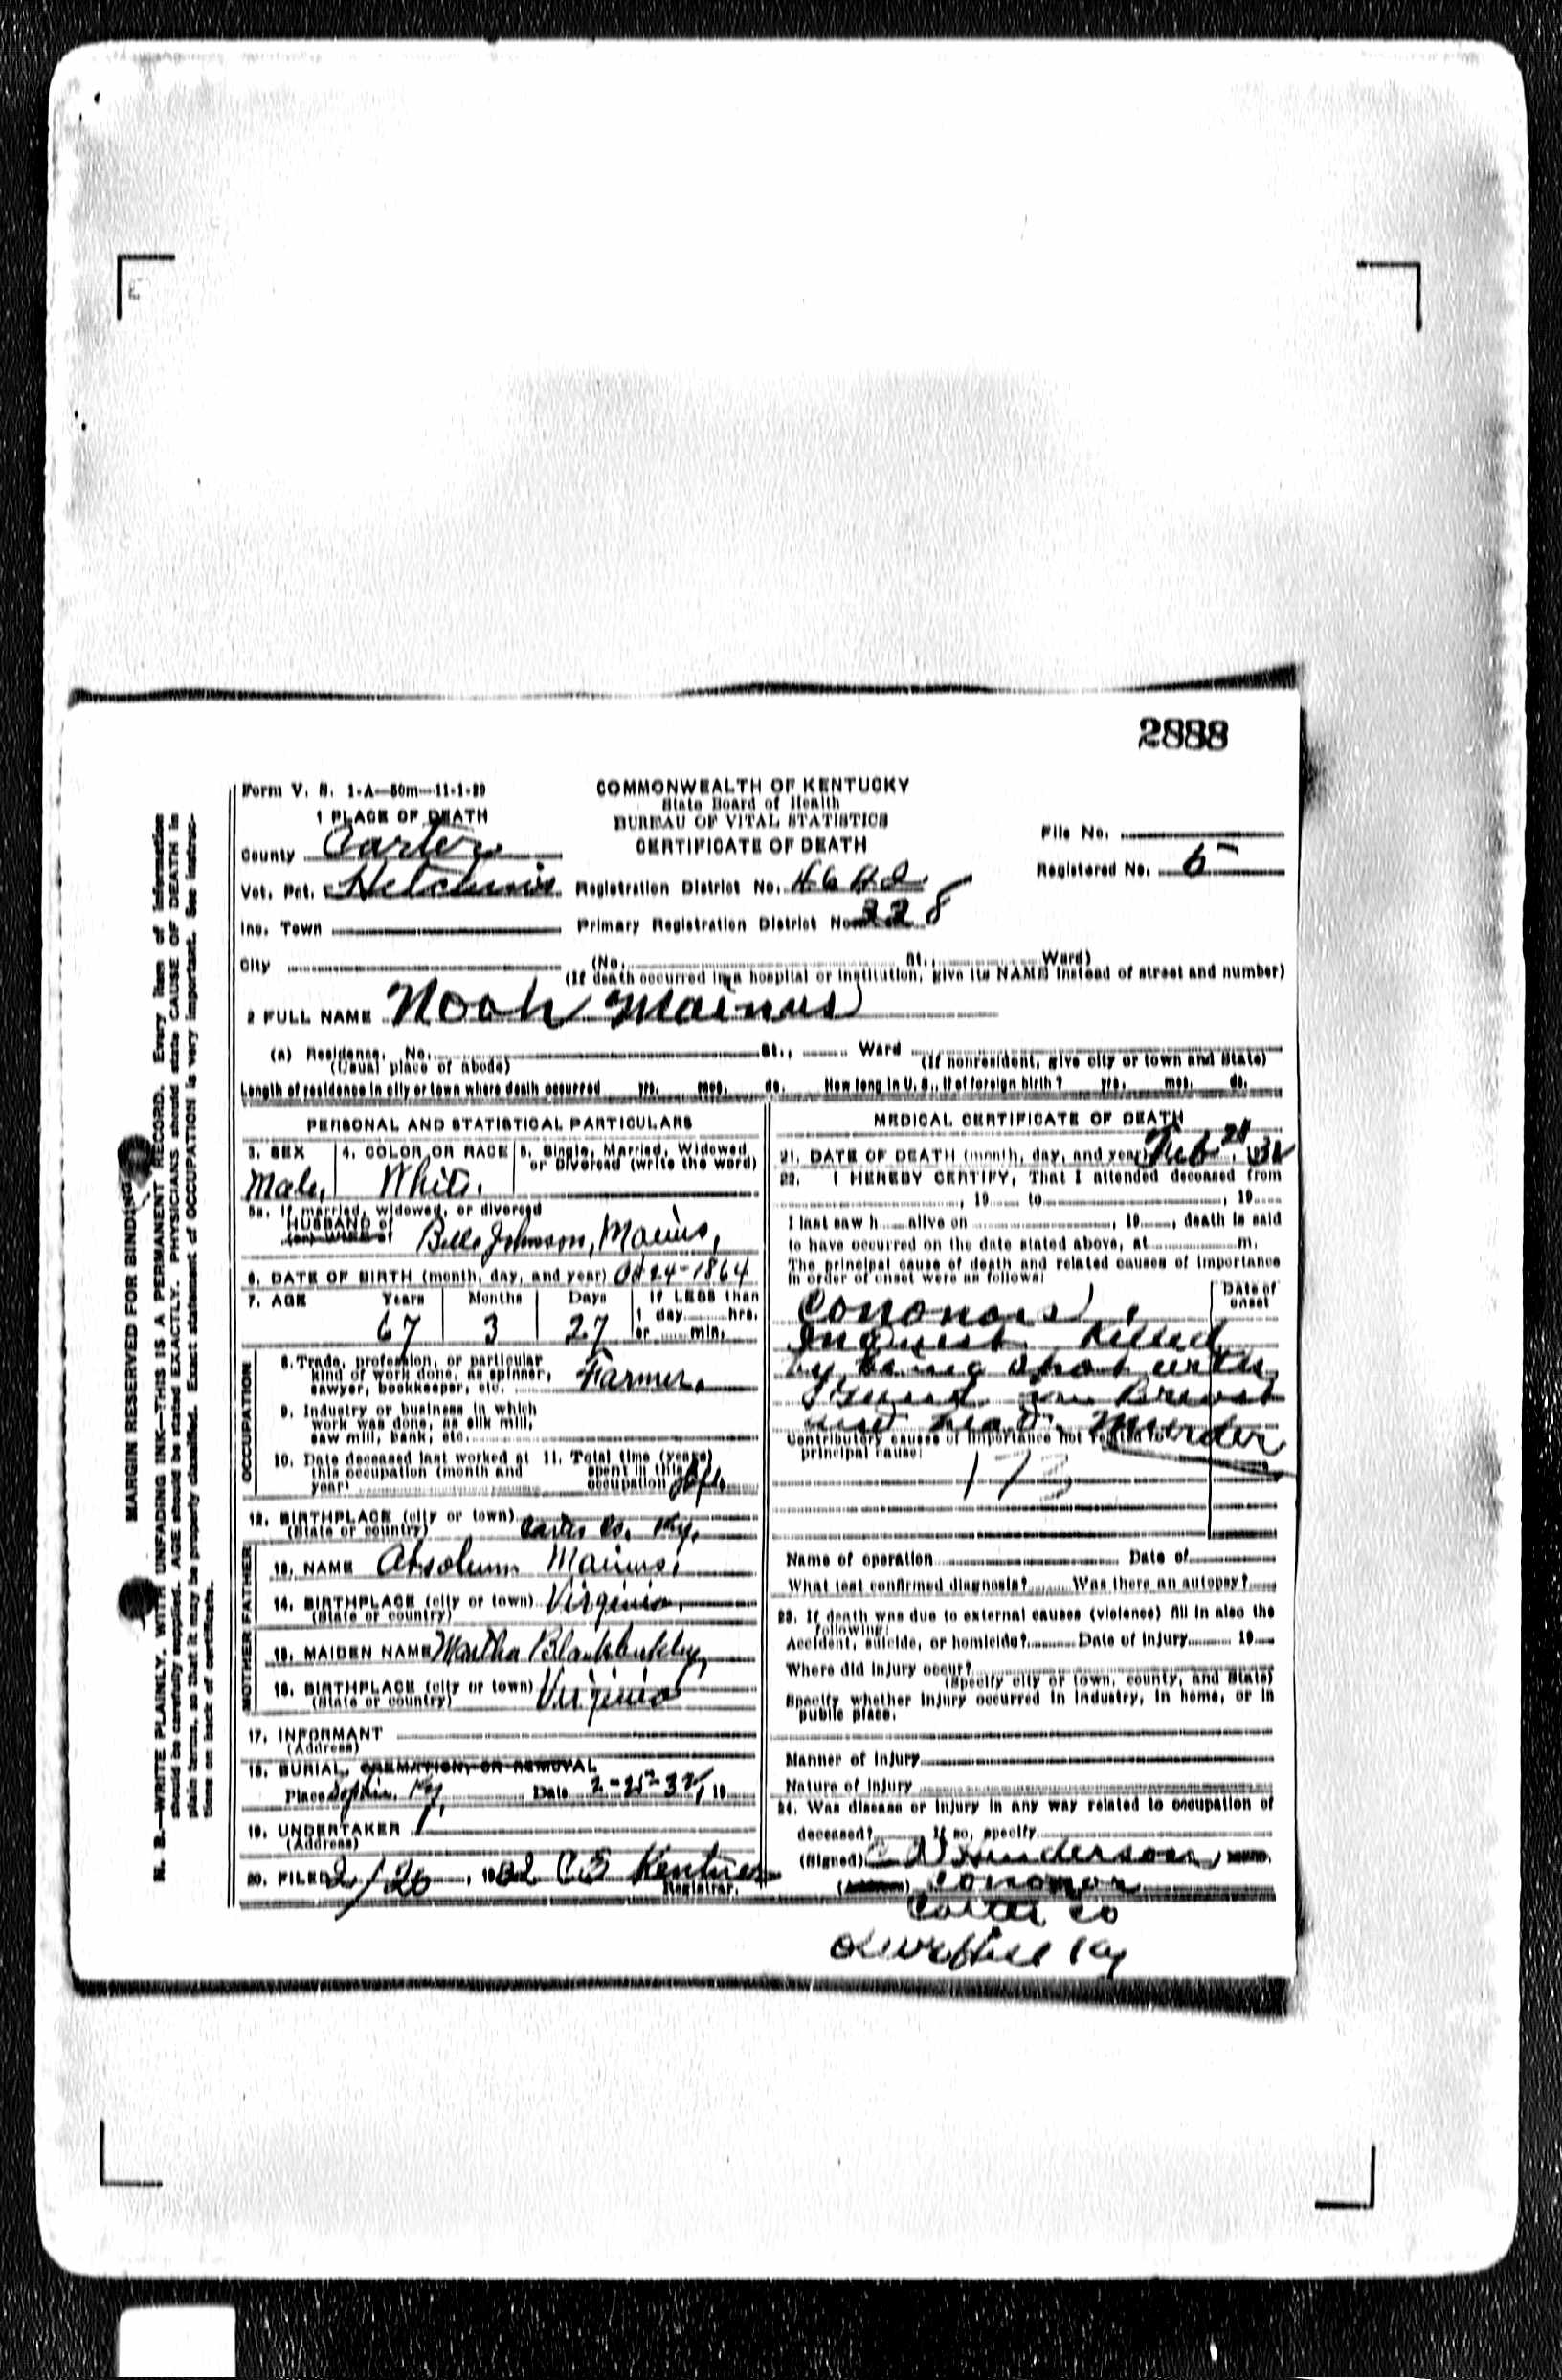 2888
Form V. S. 1-A—50m—11-1-29
COMMONWEALTH OF KENTUCKY
State Board of Health
BUREAU OF VITAL STATISTICS
CERTIFICATE OF DEATH
1 PLACE OF DEATH
County Carter
File No.
Registered No. 5
Vot. Pct. Registration District No.
Inc. Town Primary Registration District No. 228
City (No. St., Ward)
(If death occurred in a hospital or institution, give its NAME instead of street and number)
2 FULL NAME Noah Mainus
(a) Residence. No. St., Ward
(Usual place of abode) (If nonresident, give city or town and State)
Length of residence in city or town where death occurred yrs. mos. ds. How long in U. S., if of foreign birth? yrs. mos. ds.
MARGIN RESERVED FOR BINDING
N. B.—WRITE PLAINLY, WITH UNFADING INK—THIS IS A PERMANENT RECORD. Every item of information
should be carefully supplied. AGE should be stated EXACTLY. PHYSICIANS should state CAUSE OF DEATH in
plain terms, so that it may be properly classified. Exact statement of OCCUPATION is very important. See instruc-
tions on back of certificate.
PERSONAL AND STATISTICAL PARTICULARS
3. SEX 4. COLOR OR RACE 5. Single, Married, Widowed
or Divorced (write the word)
Male, White.
5a. If married, widowed, or divorced
HUSBAND of
(or) WIFE of Belle Johnson, Mainus,
6. DATE OF BIRTH (month, day, and year) Oct 24-1864
7. AGE Years Months Days If LESS than
1 day hrs.
67 3 27 or min.
OCCUPATION
8. Trade, profession, or particular
kind of work done, as spinner,
sawyer, bookkeeper, etc. Farmer.
9. Industry or business in which
work was done, as silk mill,
saw mill, bank, etc.
10. Date deceased last worked at 11. Total time (years)
this occupation (month and spent in this
year) occupation
12. BIRTHPLACE (city or town)
(State or country) Carter Co. Ky.
FATHER
13. NAME Absolum Mainus,
14. BIRTHPLACE (city or town) Virginia.
(State or country)
MOTHER
15. MAIDEN NAME Martha
16. BIRTHPLACE (city or town) Virginia
(State or country)
17. INFORMANT
(Address)
18. BURIAL, CREMATION, OR REMOVAL
Place Sophie, Ky. Date 2-25-32, 19
19. UNDERTAKER
(Address)
20. FILED 2/26, 1932 Registrar.
MEDICAL CERTIFICATE OF DEATH
21. DATE OF DEATH (month, day, and year) Feb 21, 1932
22. I HEREBY CERTIFY, That I attended deceased from
, 19 to , 19
I last saw h alive on , 19 , death is said
to have occurred on the date stated above, at m.
The principal cause of death and related causes of importance
in order of onset were as follows:
Date of
onset
Cononors
Inquest Killed
by being shot with
in Breast
and head. Murder
Contributory causes of importance not related to
principal cause:
173
Name of operation Date of
What test confirmed diagnosis? Was there an autopsy?
23. If death was due to external causes (violence) fill in also the
following:
Accident, suicide, or homicide? Date of injury 19
Where did injury occur?
(Specify city or town, county, and State)
Specify whether injury occurred in industry, in home, or in
public place.
Manner of injury
Nature of injury
24. Was disease or injury in any way related to occupation of
deceased? If so, specify
(Signed) Henderson,
(Address) Cononor
Carter Co
Olive Hill Ky